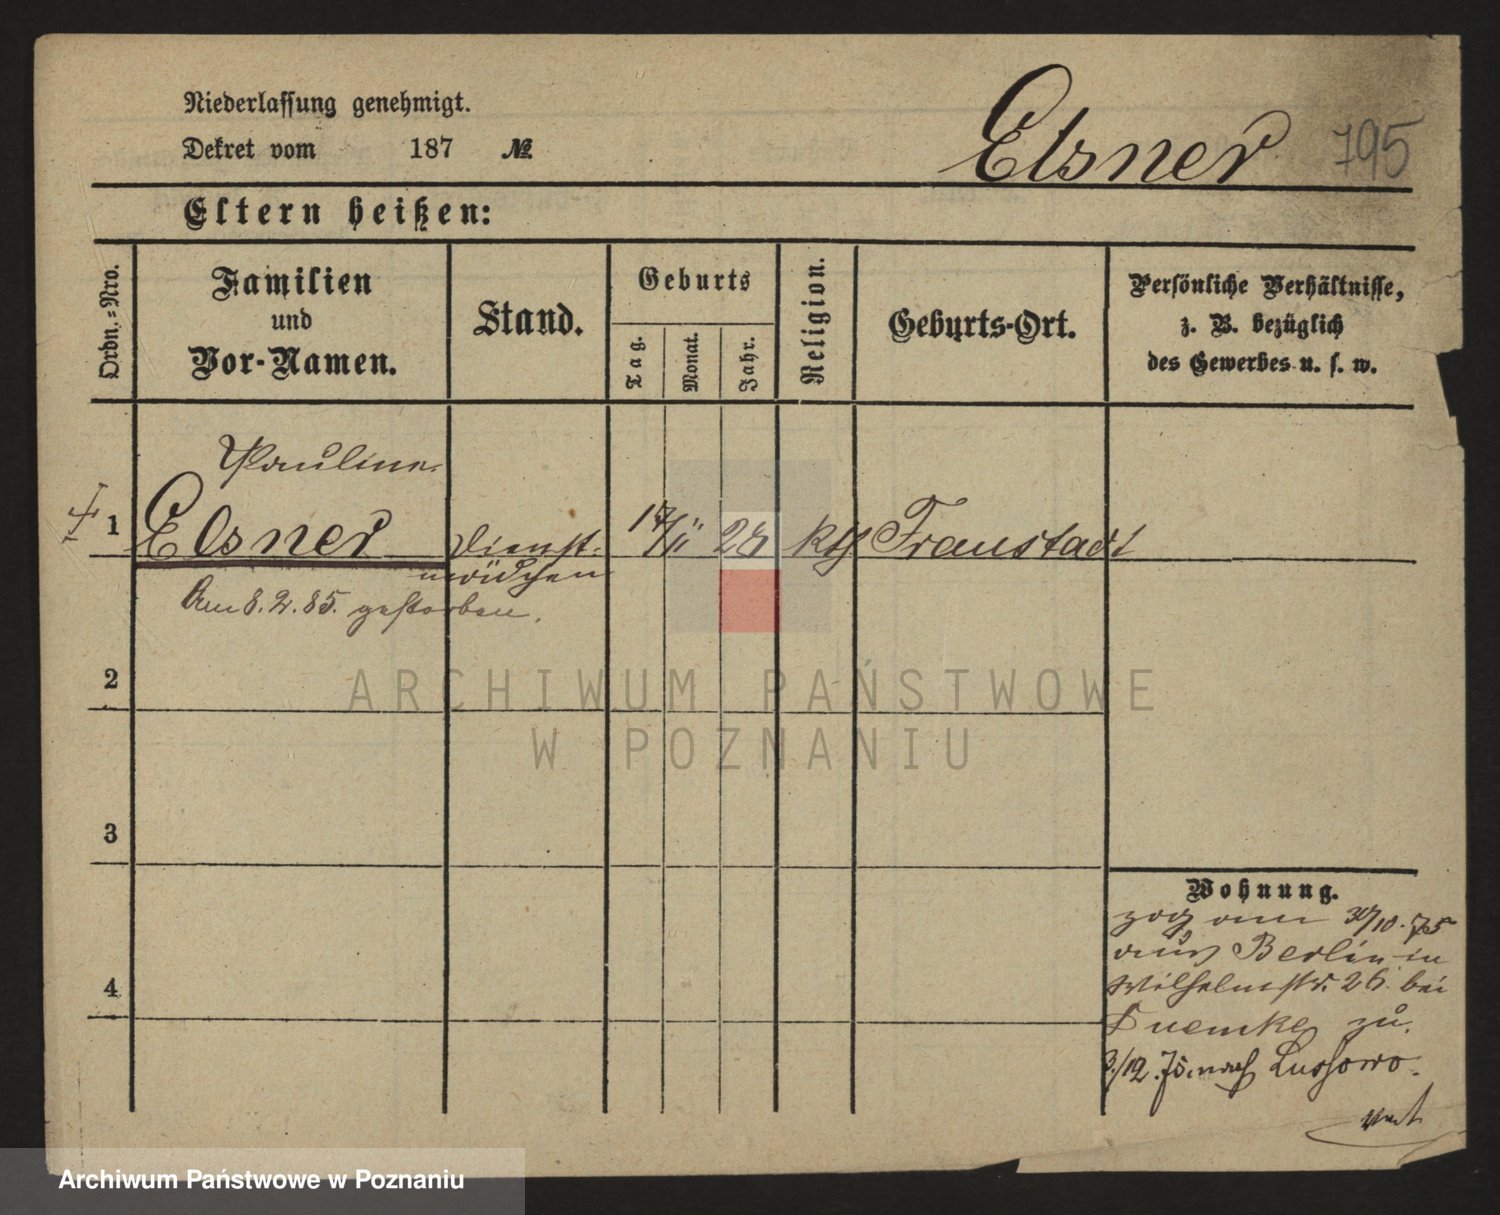 Niederlassung genehmigt.
Dekret vom 187 №
Elsner 795
Eltern heißen:
Ordn.-Nro.
Familien
und
Vor-Namen.
Stand.
Geburts
Tag.
Monat.
Jahr.
Religion.
Geburts-Ort.
Persönliche Verhältnisse,
z. B. bezüglich
des Gewerbes u. s. w.
Pauline
1 Elsner Dienst- 17/11 28 kth Fraustadt
mädchen
Am 8.2.85. gestorben.
2
3
4
Wohnung.
zog am 30/10.75
aus Berlin in
Wilhelmstr. 26 bei
zu.
3/12. nach Lussowo.
ARCHIWUM PAŃSTWOWE
W POZNANIU
Archiwum Państwowe w Poznaniu